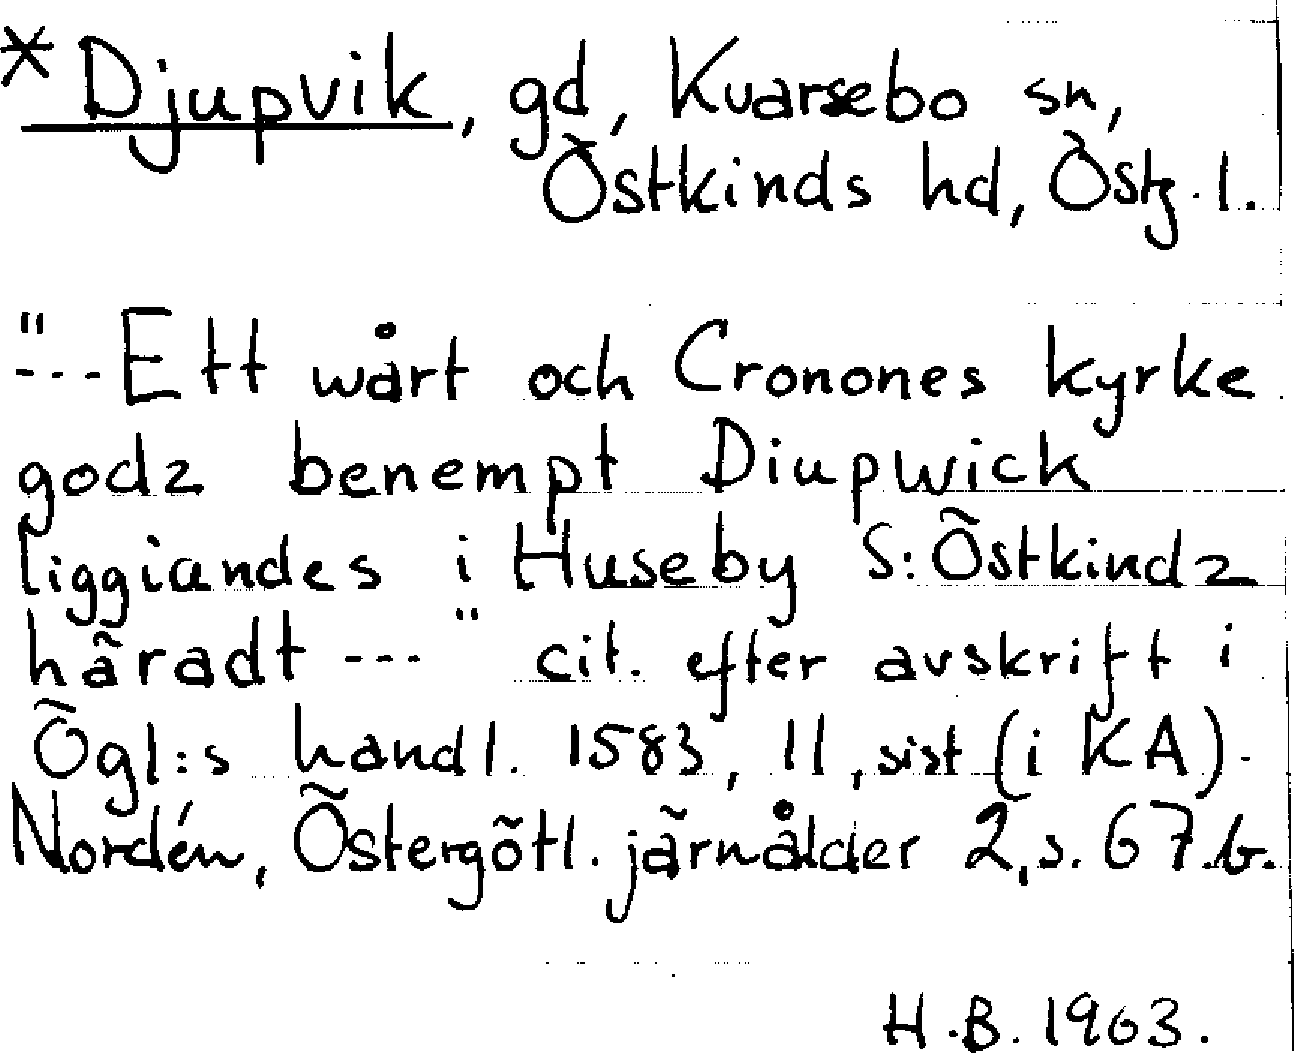 * Djupvik, gd, Kvarsebo sn,
Östkinds hd, Östg. l.
"--- Ett wårt och Cronones kyrke
godz benempt Diupwick
liggiandes i Huseby S: Östkindz
häradt --- " cit. efter avskrift i
Ögl:s handl. 1583, 11, sist (i KA).
Nordén, Östergötl. järnålder 2, s. 67.b.
H.B. 1963.